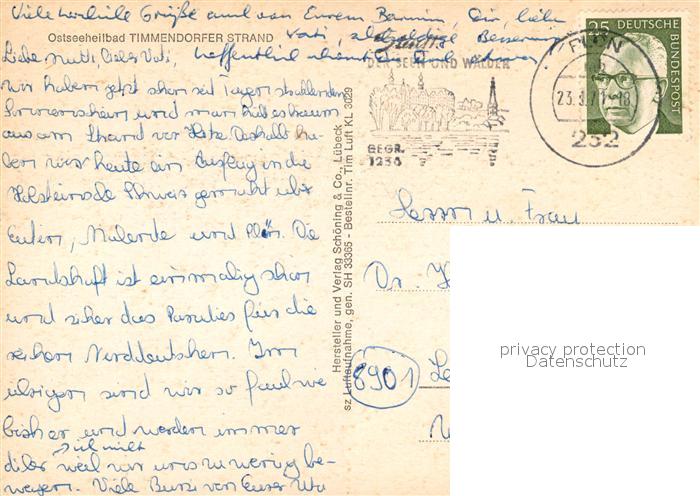 Viele herzliche Grüße auch von Eurem Dir, liebe
Vati, baldige Besserung
Ostseeheilbad TIMMENDORFER STRAND
Liebe Mutti, lieber Vati, hoffentlich
wir haben jetzt schon seit Tagen strahlenden
Sonnenschein und man hält es kaum
aus am Strand vor Hitze. Deshalb ha-
ben wir heute ein Ausflug in die
Holsteinische Schweiz gemacht über
Eutin, Malente und Plön. Die
Landschaft ist einmalig schön
und sicher das Paradies für die
reichen Norddeutschen. Im
übrigen sind wir so faul wie
bisher und werden immer
dicker weil wir uns zu wenig be-
ich mit
wegen. Viele Bussi von Eurer
Hersteller und Verlag Schöning & Co., Lübeck
sz Luftaufnahme, gen. SH 33365 - Bestellnr. Tim Luft KL 3029
DER SEEN UND WÄLDER
GEGR.
1236
PLÖN
23.9.71-18
232
25
DEUTSCHE
BUNDESPOST
Herrn u. Frau
Dr.
8901
privacy protection
Datenschutz